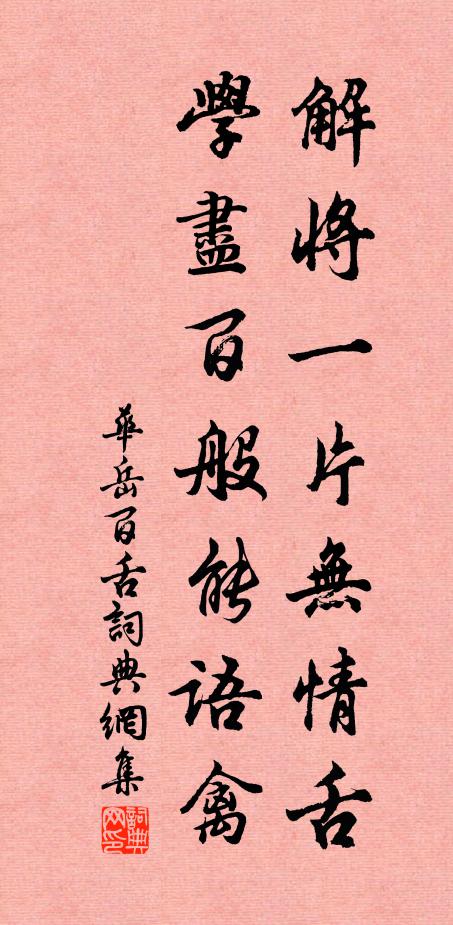 解將一片無情舌
學盡百般能語禽
華岳百舌詞典網集
詞典网印